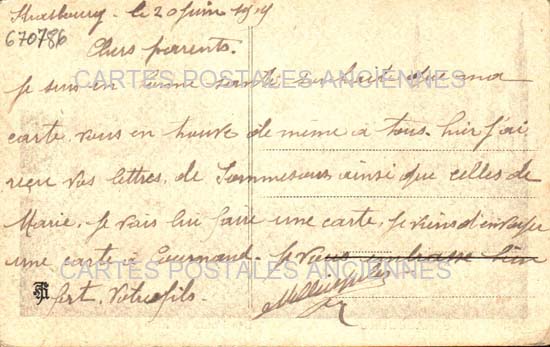 Strasbourg - le 20 juin 1919
670786
Chers parents.
Je suis en bonne santé souhaite que ma
CARTES POSTALES ANCIENNES
carte vous en trouve de même à tous. hier j'ai
reçu vos lettres de Sommesous ainsi que celles de
Marie. Je vais lui faire une carte, je viens d'envoyer
une carte à Je vous embrasse bien
CARTES POSTALES ANCIENNES
fort. Votre fils.